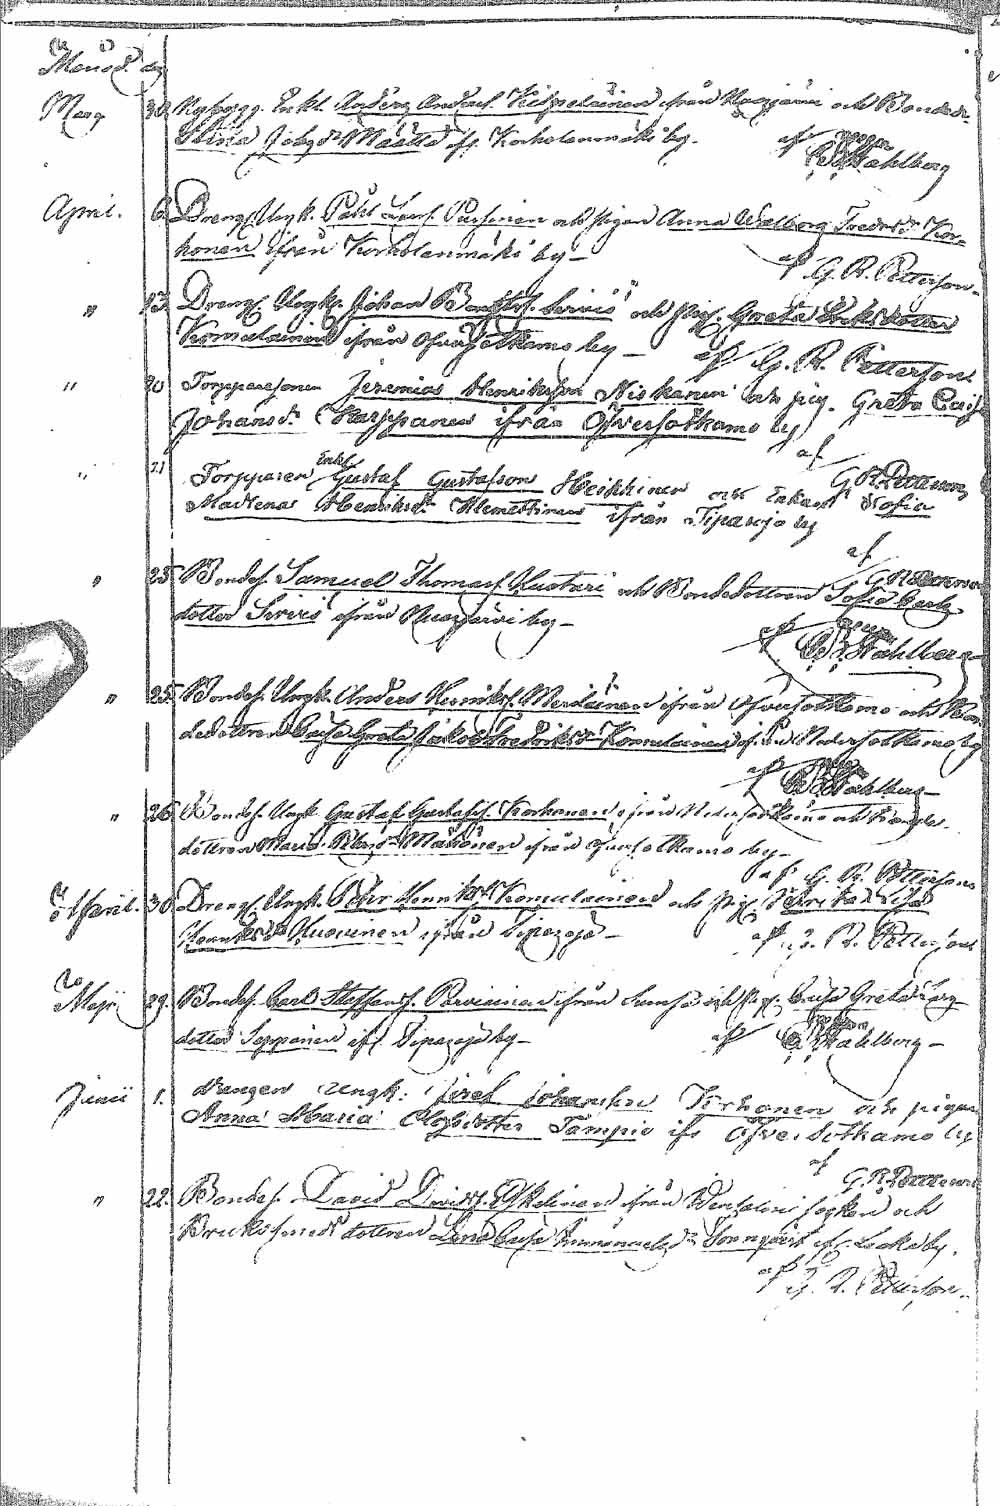 Månad. dag
Mars 30. Nybygg. Enkl. Anders Andersf. Kilpeläinen ifrån och Bonded.
Stina Jobsdr Määttä ifr. Korholanmäki by.
af Wahlberg
April. 6. Drengf. Ungk. Påhl Larsf. Pursinen och pigan Anna Walborg Fredrdr Kor-
honen ifrån Korholanmäki by -
af G. R. Petterson.
" 13. Drengf. Ungk. Johan Bengtsf. Sirviö och pig. Greta Eriksdotter
Komulainen ifrån Öfversotkamo by -
af G. R. Petterson
" 20 Torpparesonen Jeremias Henriksson Niskanen och pig. Greta Caisa
Johansdr. Karppanen ifrån Öfversotkamo by
af
G. R. Petterson
" 21 Torpparen Enkl. Gustaf Gustafson Heikkinen och Enkan Sofia
Madlena Henriksdr Klemettinen ifrån Tipasoja by
af
G R Petterson
" 25 Bondes. Samuel Thomasf. Kustari och Bondedottren Sofia Carls
dotter Sirviö ifrån Nuasjärvi by -
af Wahlberg -
" 25. Bondes. Ungk. Anders Henriksf. Meriläinen ifrån Öfversotkamo och Bon
dedottren Caisa Greta Jakob Fredriksdr Komulainen ifrån Nedersotkamo by
af Wahlberg -
" 26 Bondes. Ungk. Gustaf Gustafsf. Korhonen ifrån Nedersotkamo och Bonde-
dottren Maria Påhlsdr Määttänen ifrån Öfversotkamo by -
af G. R. Petterson
April. 30. Drengf. Ungk. Petter Henriksf. Komulainen och pig. Fredrika Lisa
Henriksdr Kuvunen ifrån Tipasoja -
af G. R. Petterson
Maji 29. Bondes. Carl Staffansf. Parviainen ifrån Sumsa och pig. Caisa Greta Lars
dotter Seppänen ifr. Tipasoja by -
af Wahlberg -
Junii 1. drengen ungk: Josef Johansson Korhonen och pigan
Anna Maria Olofsdotter Tampio ifr Öfversotkamo by
af
G. R. Petterson
" 22. Bondes. David Davidsf. Eskelinen ifrån socken och
Bruksmeddottren Lena Caisa Emanuelsdr Lönnqvist ifr. by.
af G. R. Petterson.